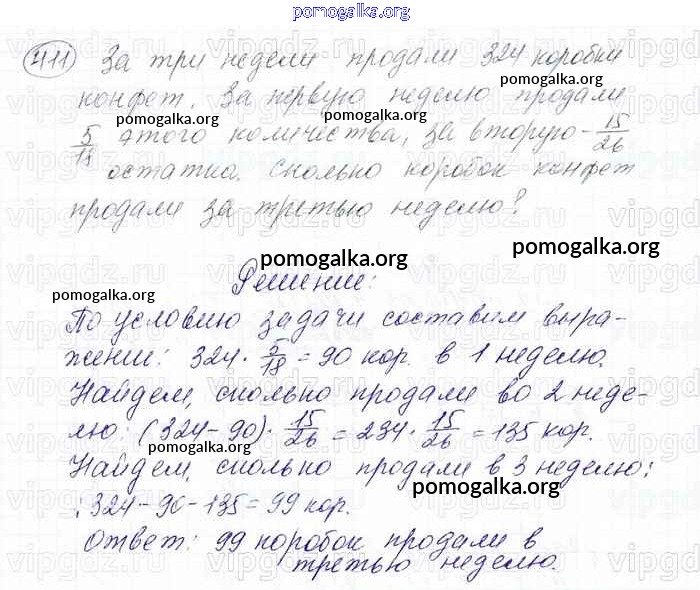 pomogalka.org
411 За три недели продали 324 коробки
pomogalka.org
конфет. За первую неделю продали
5/18 этого количества, за вторую - 15/26
остатка. Сколько коробок конфет
продали за третью неделю?
pomogalka.org
pomogalka.org
Решение:
pomogalka.org
По условию задачи составим выра-
жении: 324 · 5/18 = 90 кор. в 1 неделю.
Найдем, сколько продали во 2 неде-
лю: (324-90) · 15/26 = 234 · 15/26 = 135 кор.
pomogalka.org
Найдем, сколько продали в 3 неделю:
: 324-90-135=99 кор.
pomogalka.org
Ответ: 99 коробок продали в
третью неделю.